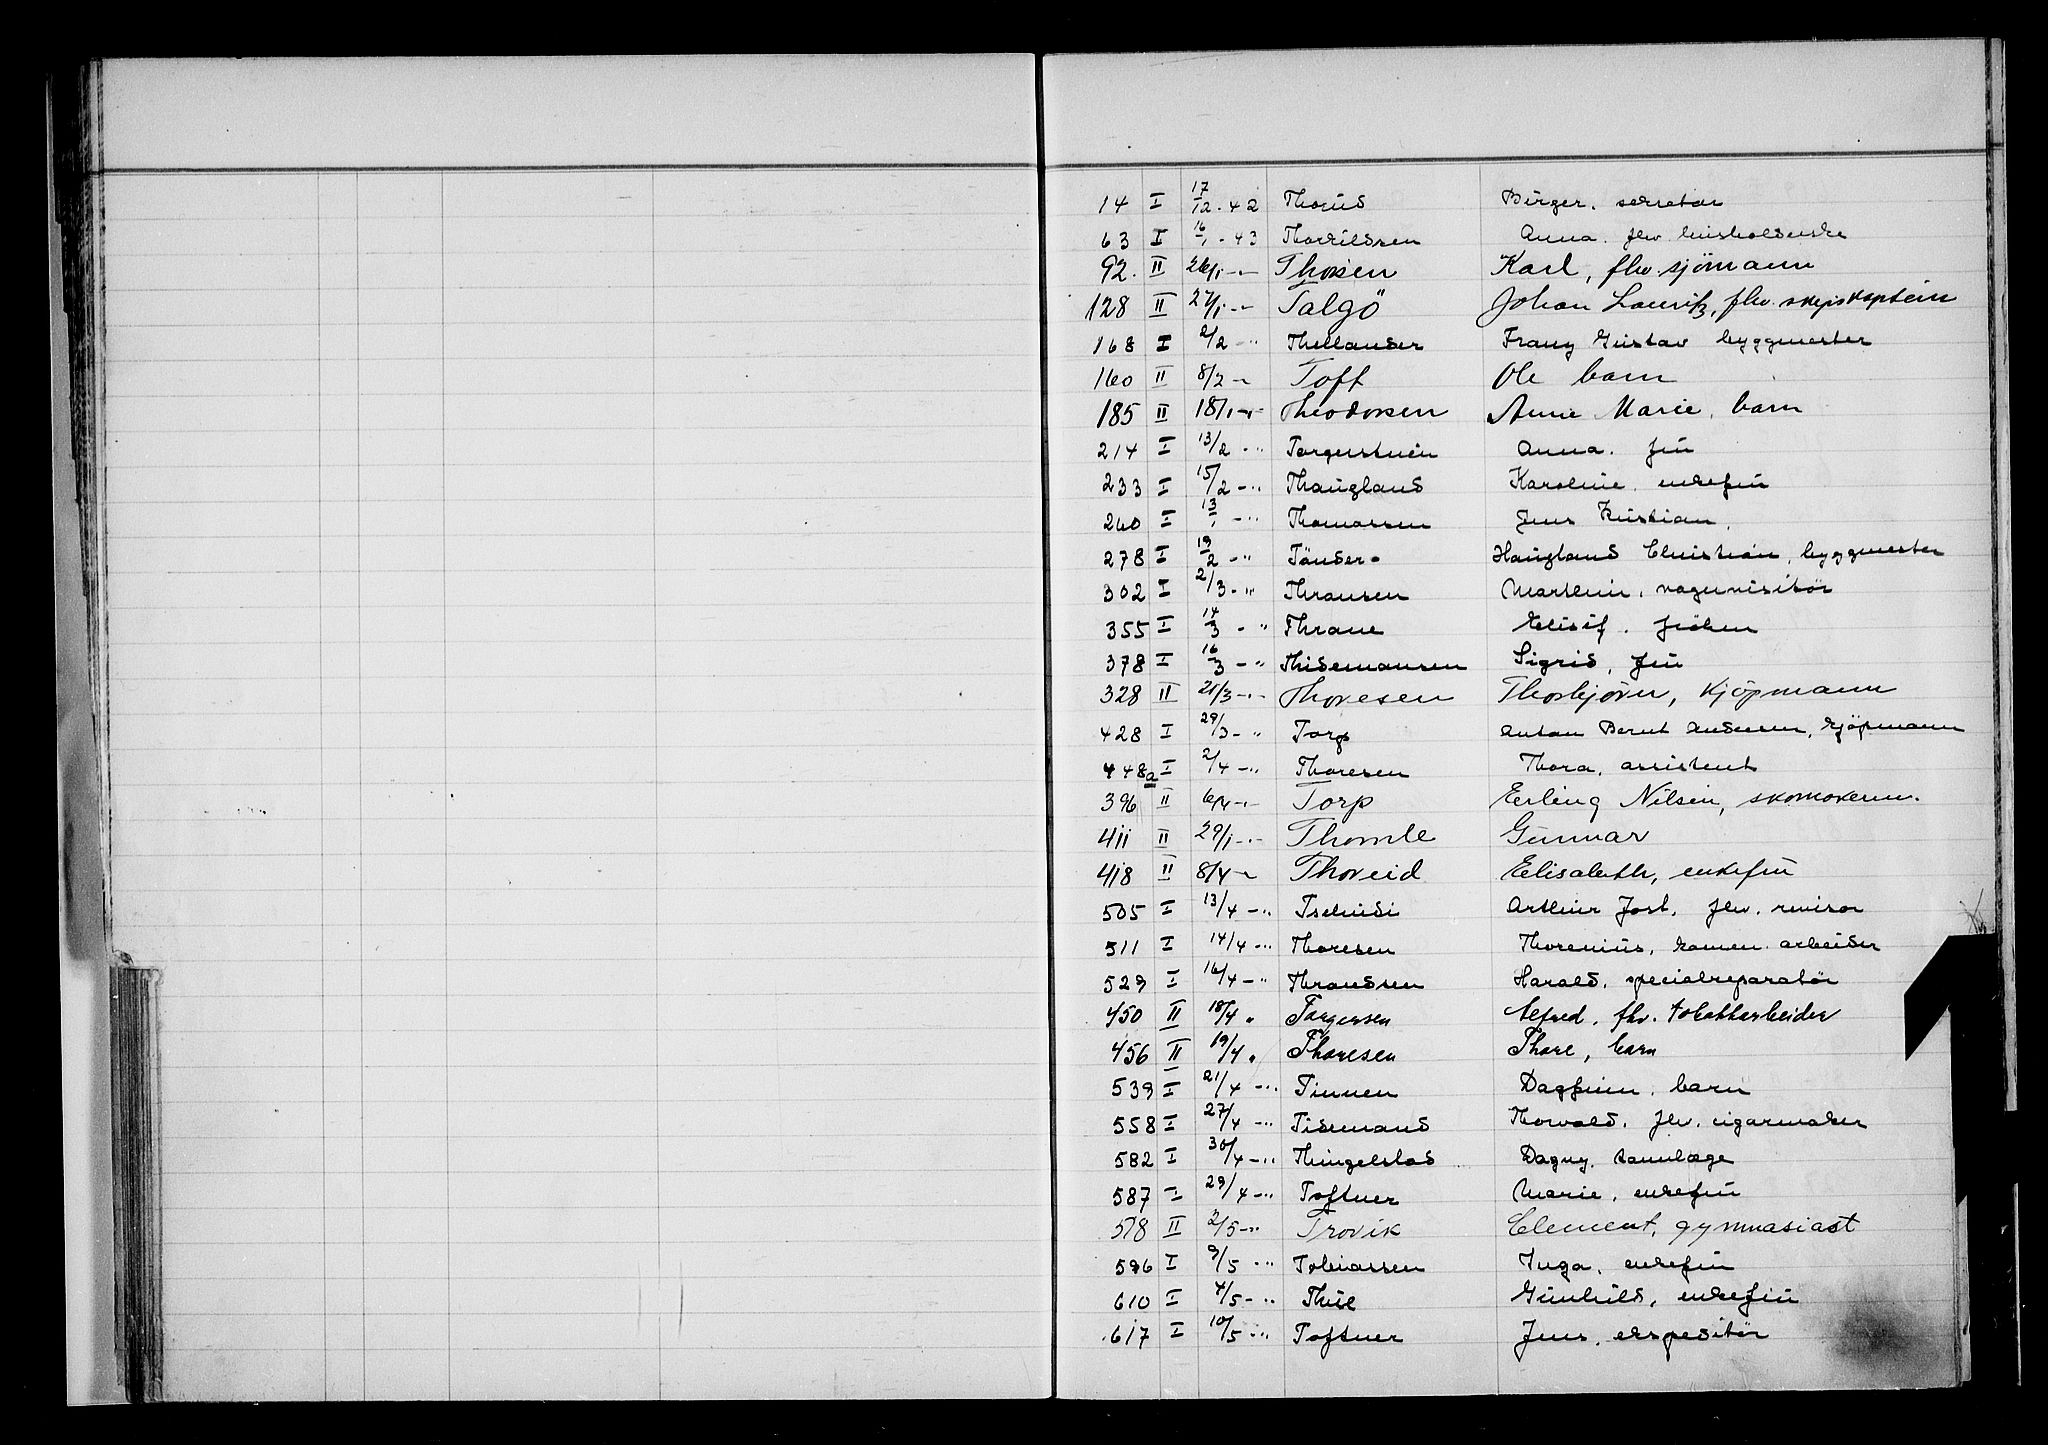 14 I 17/12 - 42 Thorud Birger, sekretær
63 I 16/1 - 43 Thorkildsen Anna, fhv. husholderske
92. II 26/1 -"- Thorsen Karl, fhv. sjömann
128 II 27/1 -"- Talgö Johan Lauritz, fhv. skipskaptein
168 I 2/2 -"- Thellander Franz Gustav byggmester
160 II 8/2 -"- Toft Ole barn
185 II 18/1 -"- Theodorsen Anne Marie, barn
214 I 13/2 -"- Torgerstuen Anna. fru
233 I 15/2 -"- Thaugland Karoline, enkefru
260 I 13/1 -"- Thomassen Jens Kristian,
278 I 19/2 -"- Tånder- Haugland Christian, byggmester
302 I 2/3 -"- Thransen Marthin, vognvisitør
355 I 14/3 -"- Thrane Elisif. frøken
378 I 16/3 -"- Thidemansen Sigrid, fru
328 II 21/3 -"- Thoresen Thorbjörn, kjöpmann
428 I 29/3 -"- Torp Anton Bernt Andersen, kjöpmann
448a I 2/4 -"- Thoresen Thora, assistent
396 II 6/4 -"- Torp Erling Nilsen, skomakerm.
411 II 29/1 -"- Thomle Gunnar
418 II 8/4 -"- Thoreid Elisabeth, enkefru
505 I 13/4 -"- Tschudi Arthur Jost, fhv. revisor
511 I 14/4 -"- Thoresen Thorenius, komm. arbeider
529 I 16/4 -"- Throndsen Harald, specialreparatør
450 II 18/4 " Torgersen Alfred, fhv. tobakkarbeider
456 II 19/4 " Thoresen Thore, barn
539 I 21/4 -"- Tinnen Dagfinn, barn
558 I 27/4 -"- Tidemand Thorvald, fhv. cigarmaker
582 I 30/4 -"- Thingelstad Dagny, tannlæge
587 I 29/4 -"- Toftner Marie, enkefru
578 II 2/5 -"- Trovik Clement, gymnasiast
596 I 9/5 -"- Tobiassen Inga, enkefru
610 I 4/5 -"- Thue Gunhild, enkefru
617 I 10/5 -"- Toftner Jens, ekspeditør